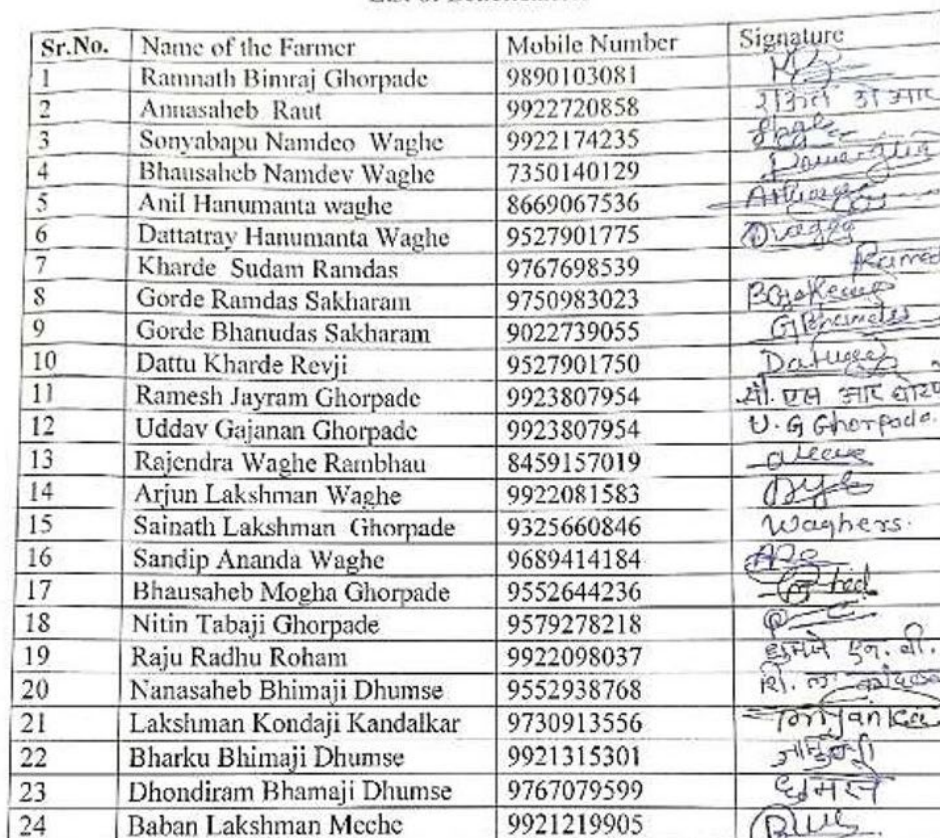 Sr.No. Name of the Farmer Mobile Number Signature
1 Ramnath Bimraj Ghorpade 9890103081
2 Annasaheb Raut 9922720858
3 Sonyabapu Namdeo Waghe 9922174235
4 Bhausaheb Namdev Waghe 7350140129
5 Anil Hanumanta waghe 8669067536
6 Dattatray Hanumanta Waghe 9527901775
7 Kharde Sudam Ramdas 9767698539
8 Gorde Ramdas Sakharam 9750983023
9 Gorde Bhanudas Sakharam 9022739055
10 Dattu Kharde Revji 9527901750
11 Ramesh Jayram Ghorpade 9923807954
12 Uddav Gajanan Ghorpade 9923807954 U. G Ghorpade.
13 Rajendra Waghe Rambhau 8459157019
14 Arjun Lakshman Waghe 9922081583
15 Sainath Lakshman Ghorpade 9325660846 Waghers.
16 Sandip Ananda Waghe 9689414184
17 Bhausaheb Mogha Ghorpade 9552644236
18 Nitin Tabaji Ghorpade 9579278218
19 Raju Radhu Roham 9922098037
20 Nanasaheb Bhimaji Dhumse 9552938768
21 Lakshman Kondaji Kandalkar 9730913556
22 Bharku Bhimaji Dhumse 9921315301
23 Dhondiram Bhamaji Dhumse 9767079599 धुमसे
24 Baban Lakshman Meche 9921219905